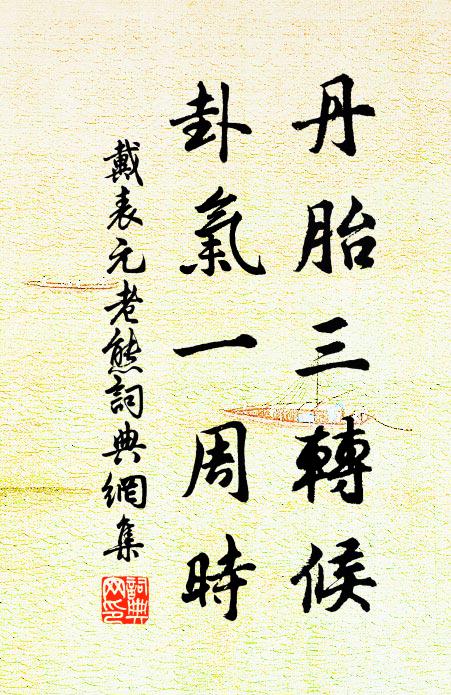 丹胎三轉候
卦氣一周時
戴表元老熊詞典網集
詞典網印